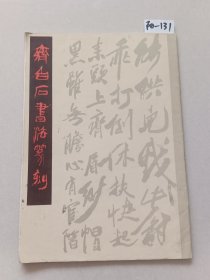 阳-131
齊白石書法篆刻
能供兒戲此翁
乖打倒休扶快起
來頭上齊眉紗帽
黑雖無膽心有官階